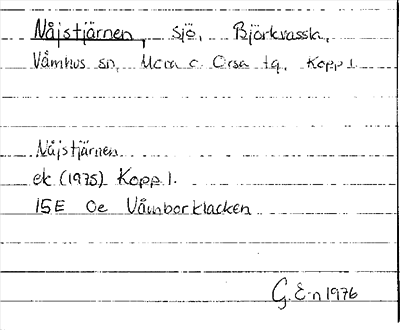 Nåjstjärnen, sjö, Björkvassla,
Våmhus sn, Mora o. Orsa tg, Kopp l.
Nåjstjärnen
ek (1975) Kopp l.
15E 0e Våmborklacken
G. E-n 1976